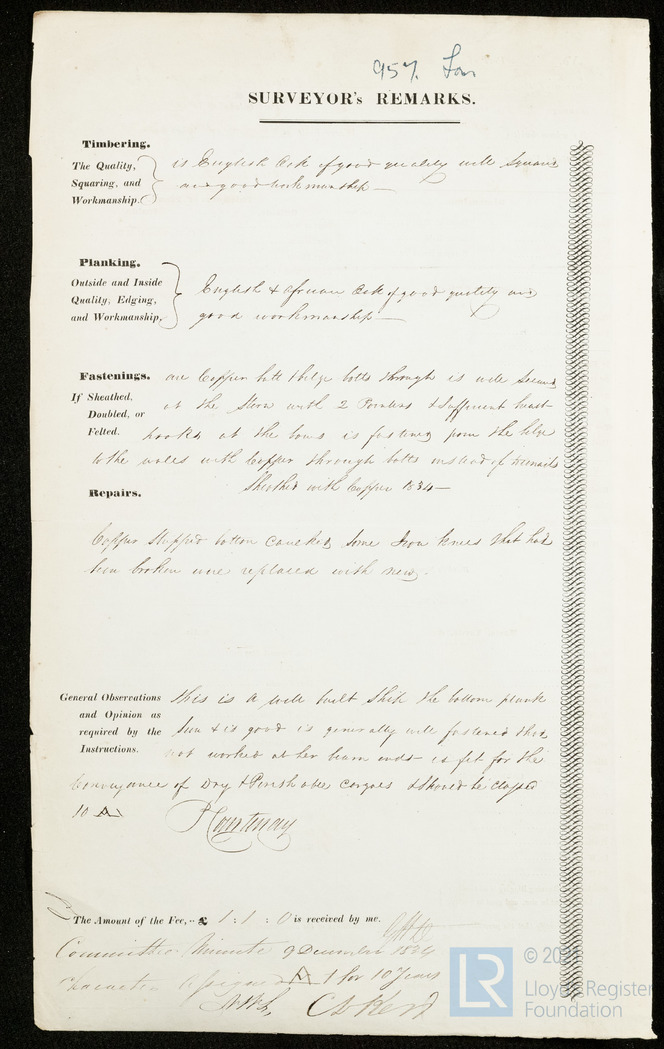 957. Lon
SURVEYOR's REMARKS.
Timbering.
The Quality,
Squaring, and
Workmanship.
is English Oak of good quality well Squared
and good workmanship —
Planking.
Outside and Inside
Quality, Edging,
and Workmanship,
English & African Oak of good quality and
good workmanship —
Fastenings.
If Sheathed,
Doubled, or
Felted.
are Copper butt & bilge bolts through is well Secured
at the Stern with 2 Pointers & Sufficient breast-
hooks at the bows is fastened from the bilge
to the wales with Copper through bolts instead of treenails
Sheathed with Copper 1834 —
Repairs.
Copper Stripped bottom caulked Some Iron knees that had
been broken were replaced with new.
General Observations
and Opinion as
required by the
Instructions.
this is a well built Ship the bottom plank
Seen & is good is generally well fastened tho
not worked at her beam ends – is fit for the
Conveyance of Dry & Perishable cargoes & Should be Classed
10 A
P Courtenay
The Amount of the Fee, £ 1 : 1 : 0 is received by me.
Committee Minute 9 December 1834
Character assigned A 1 for 10 Years
LR
© 202
Lloyd's Register
Foundation